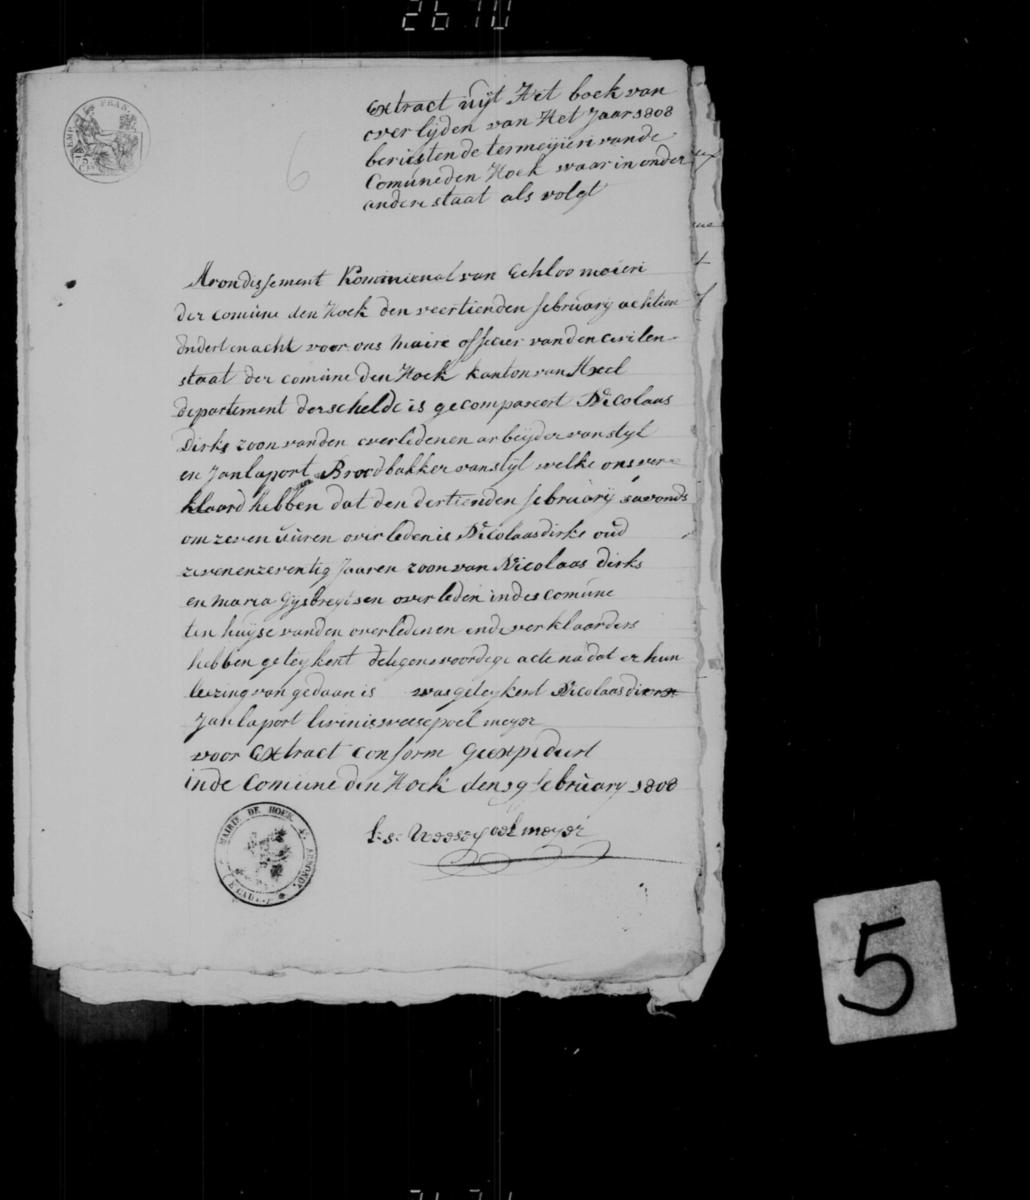 2670
EMP. FRAN.
6
Extract uijt Het boek van
overlijden van Het Jaar 1808
berustende ter meijeri van de
Comune den Hoek waar in onder
andere staat als volgt
Arondissement Kominenal van Echloo maieri
der comune den Hoek den veertienden february achtien
ondert en acht voor ons maire officier van den civilen
staat der comune den Hoek kanton van Axel
departement der schelde is gecompareert Nicolaas
Dirks zoon van den overledenen arbeijder van styl
en Jan laport Broodbakker van styl welke ons ver
klaard hebben dat den dertienden february savonds
om zeven uuren overleden is Nicolaas dirks oud
zevenenzeventig Jaaren zoon van Nicolaas dirks
en maria Gijsbregtsen overleden in des comune
ten huijse van den overledenen ende verklaarders
hebben geteykent delegenswoordege acte nadat er hun
leezing van gedaan is was geteykent Nicolaas dierx
Jan laport livinis weesepoel meyer
voor Extract conform Geexpideert
in de Comune den Hoek den 19 february 1808
MAIRIE DE HOEK
L. s. Weesepoel meyer
5